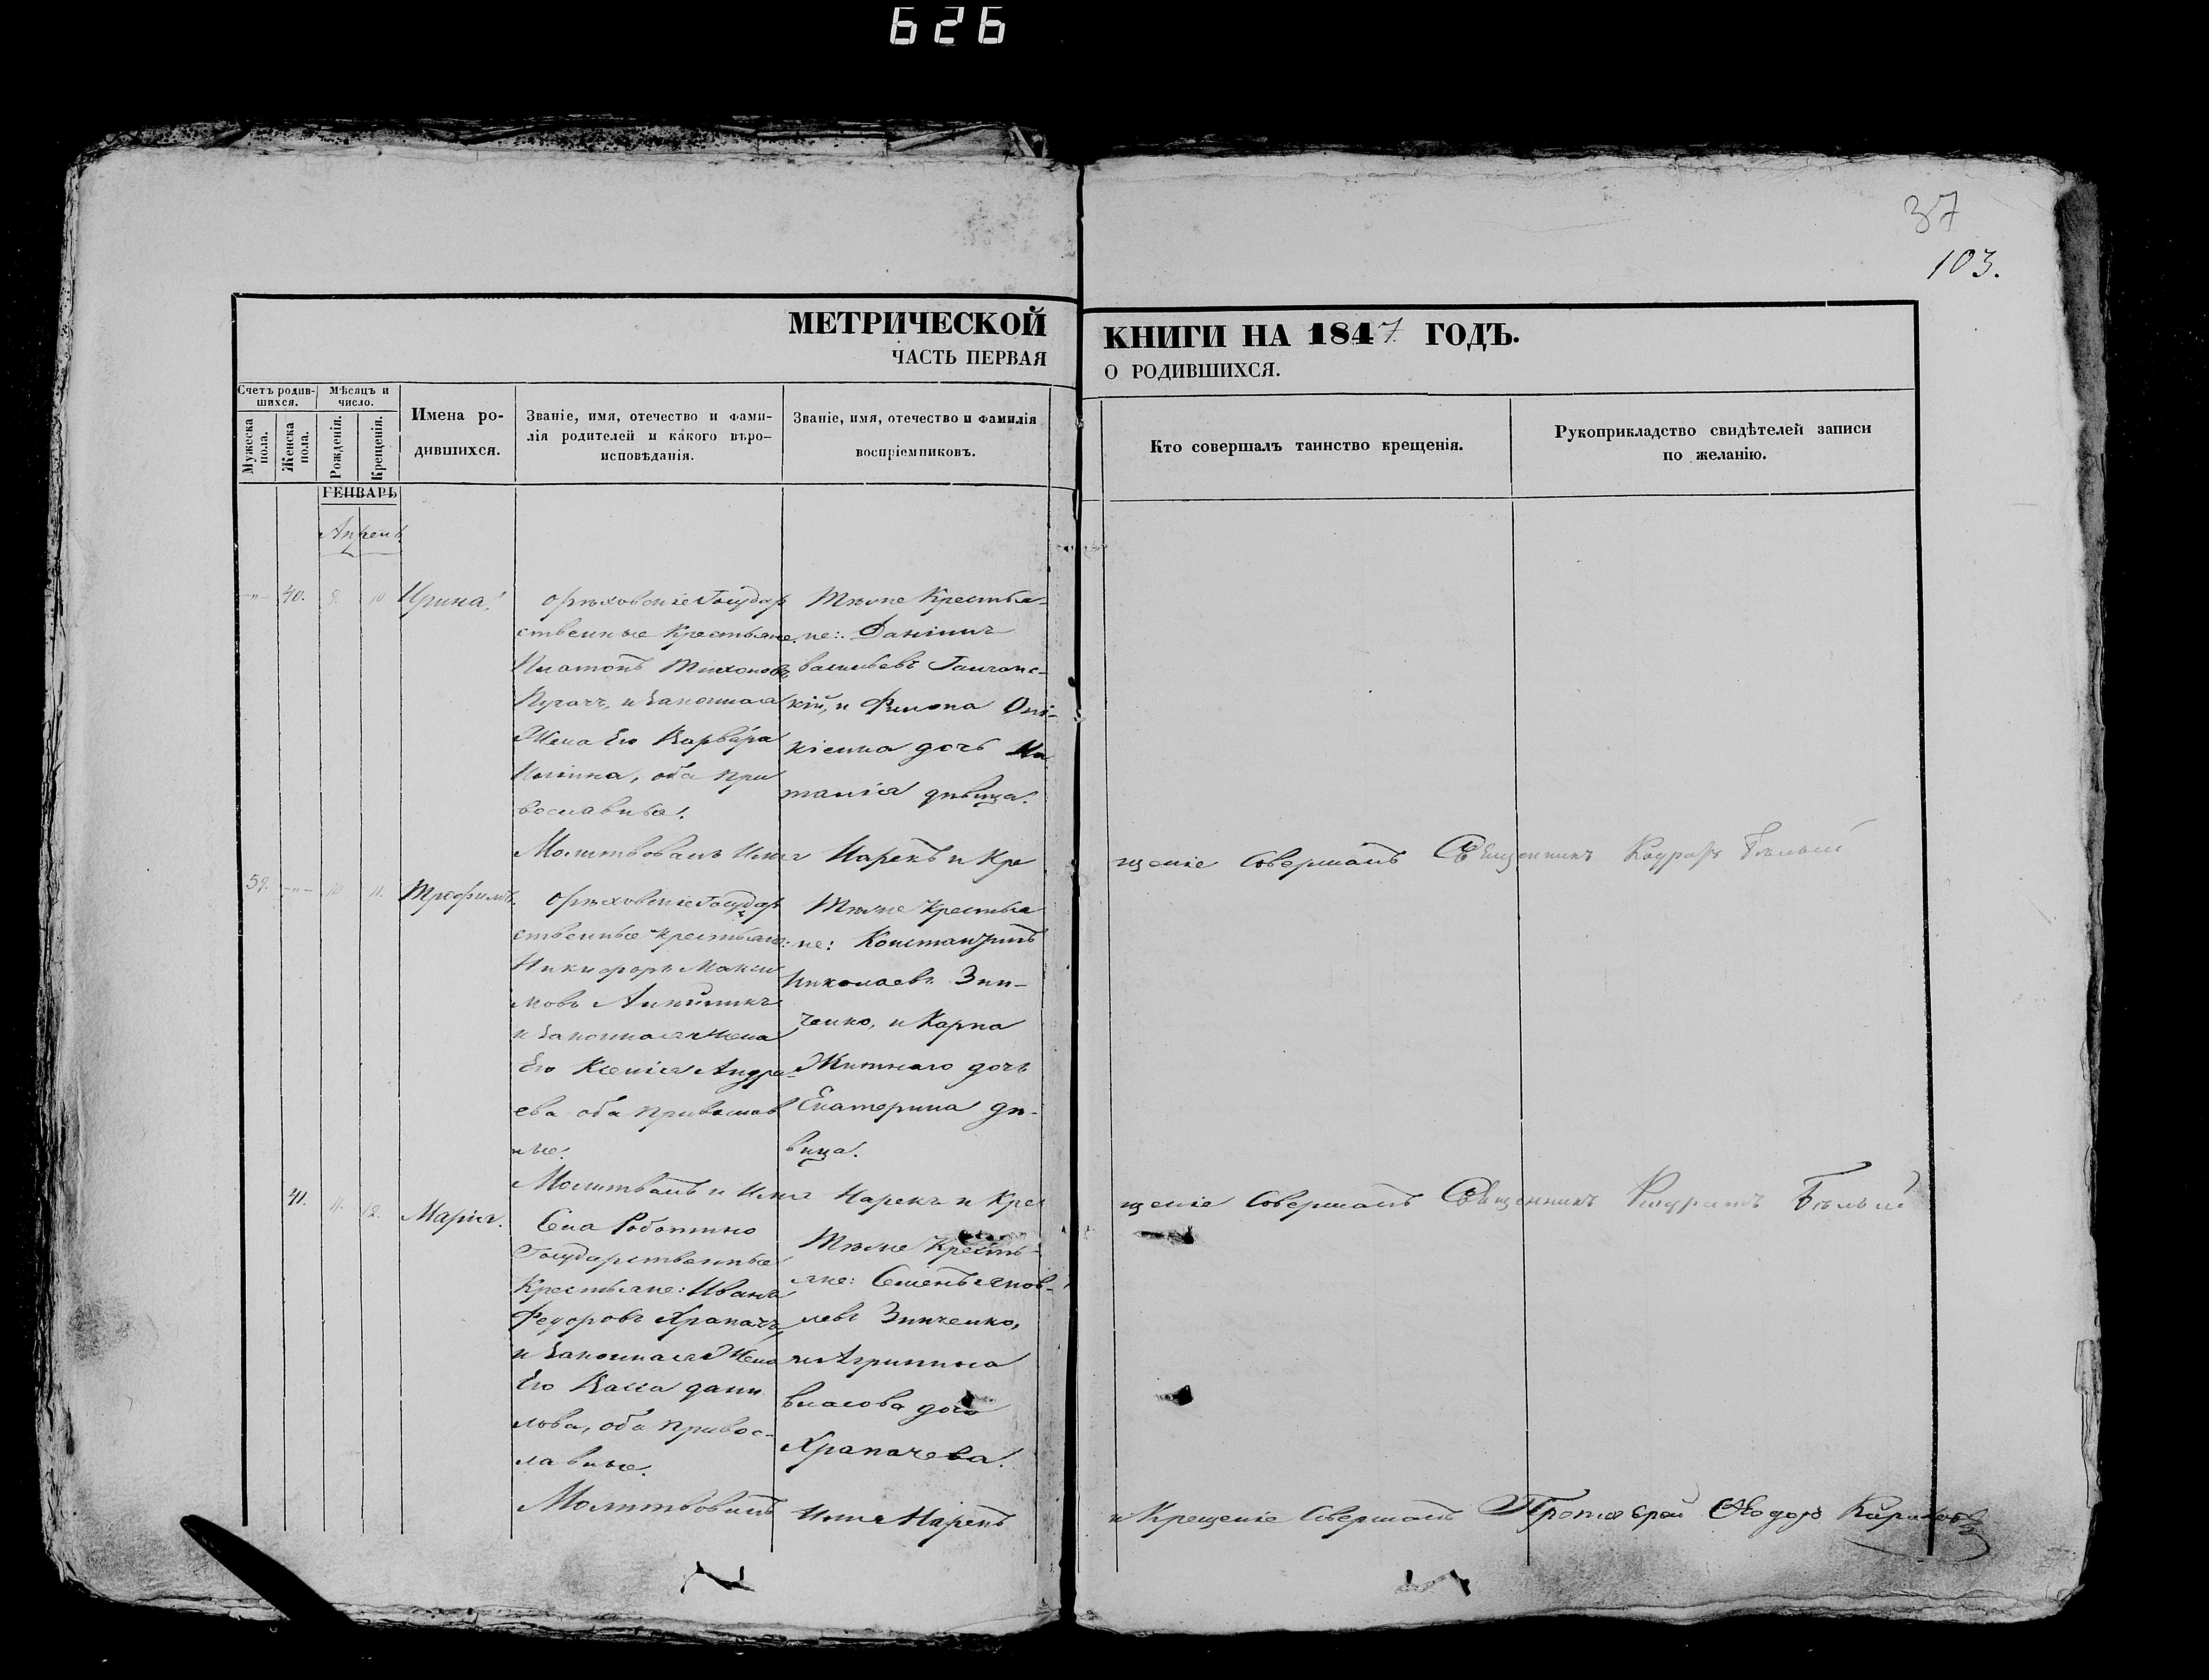 626
37
103.
МЕТРИЧЕСКОЙ
ЧАСТЬ ПЕРВАЯ
КНИГИ НА 1847 ГОДЪ.
О РОДИВШИХСЯ.
Счетъ родившихся.
Мужеска пола.
Женска пола.
Мѣсяцъ и число.
Рожденія.
Крещенія.
Имена родившихся.
Званіе, имя, отечество и фами-
лія родителей и какого вѣро-
исповѣданія.
Званіе, имя, отечество и фамилія
воспріемниковъ.
Кто совершалъ таинство крещенія.
Рукоприкладство свидѣтелей записи
по желанію.
ГЕНВАРЬ
Апрель
40. 9. 10 Ирина.
Орѣховскіе Государ
ственные Крестьяне
Платонъ Тихоновъ
Пугачъ, и законная
Жена Его Варвара
оба пра
вославные.
Тѣже Крестья-
не: Даніилъ
Васильевъ
кій, и Филипа
дочь На
таліа дѣвица.
Молитвовалъ Имя Нарекъ и Кре
щеніе Совершалъ Священникъ Кодратъ Бѣлый
59. 10 11. Трофимъ.
Орѣховскіе Государ
ственные Крестьяне:
Никифоръ Макси
мовъ
и законная Жена
Его Ксенія Андре-
ева оба православ
ные.
Тѣже Крестья
не: Константинъ
Николаевъ Зин-
ченко, и Карпа
Житнаго дочь
Екатерина дѣ-
вица.
Молитвалъ и Имя Нарекъ и Кре
щеніе Совершалъ Священникъ Кодратъ Бѣлый
41. 11. 12. Марія.
Села Роботино
Государственные
Крестьяне: Иванъ
Федоровъ Храпачъ,
и законная Жена
Его Васса Дани
лова, оба правос-
лавные.
Тѣже Кресть-
яне: Семенъ Яков-
левъ Зинченко,
и Агрипина
Власова дочь
Храпачева.
Молитвовалъ Имя Нарекъ
и Крещеніе Совершалъ Протоіерей Ѳеодоръ